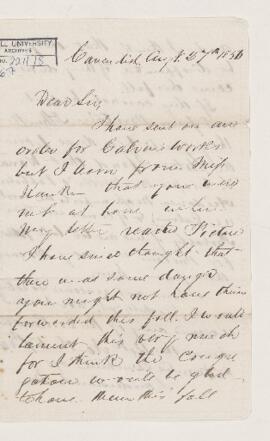 L. UNIVERSITY
ARCHIVES
Cavendish Aug. 27th 1856
Dear Sir
I have sent on an
order for Calvin's works
but I learn from Miss
that you were
not at home when
my letter reached
I have since thought that
there was some danger
you might not have them
forwarded this fall. I would
lament this very much
for I think the Congre
gation would be glad
to have them this fall